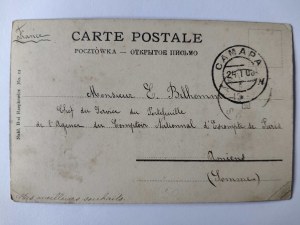 France
CARTE POSTALE
POCZTÓWKA — ОТКРЫТОЕ ПИСЬМО
САМАРА
24 1 08
Monsieur E. Bilhomme
Chef du Service du Portefeuille
de l'Agence du Comptoir National d'Escompte de Paris
Amiens
(Somme)
Mes meilleurs souhaits